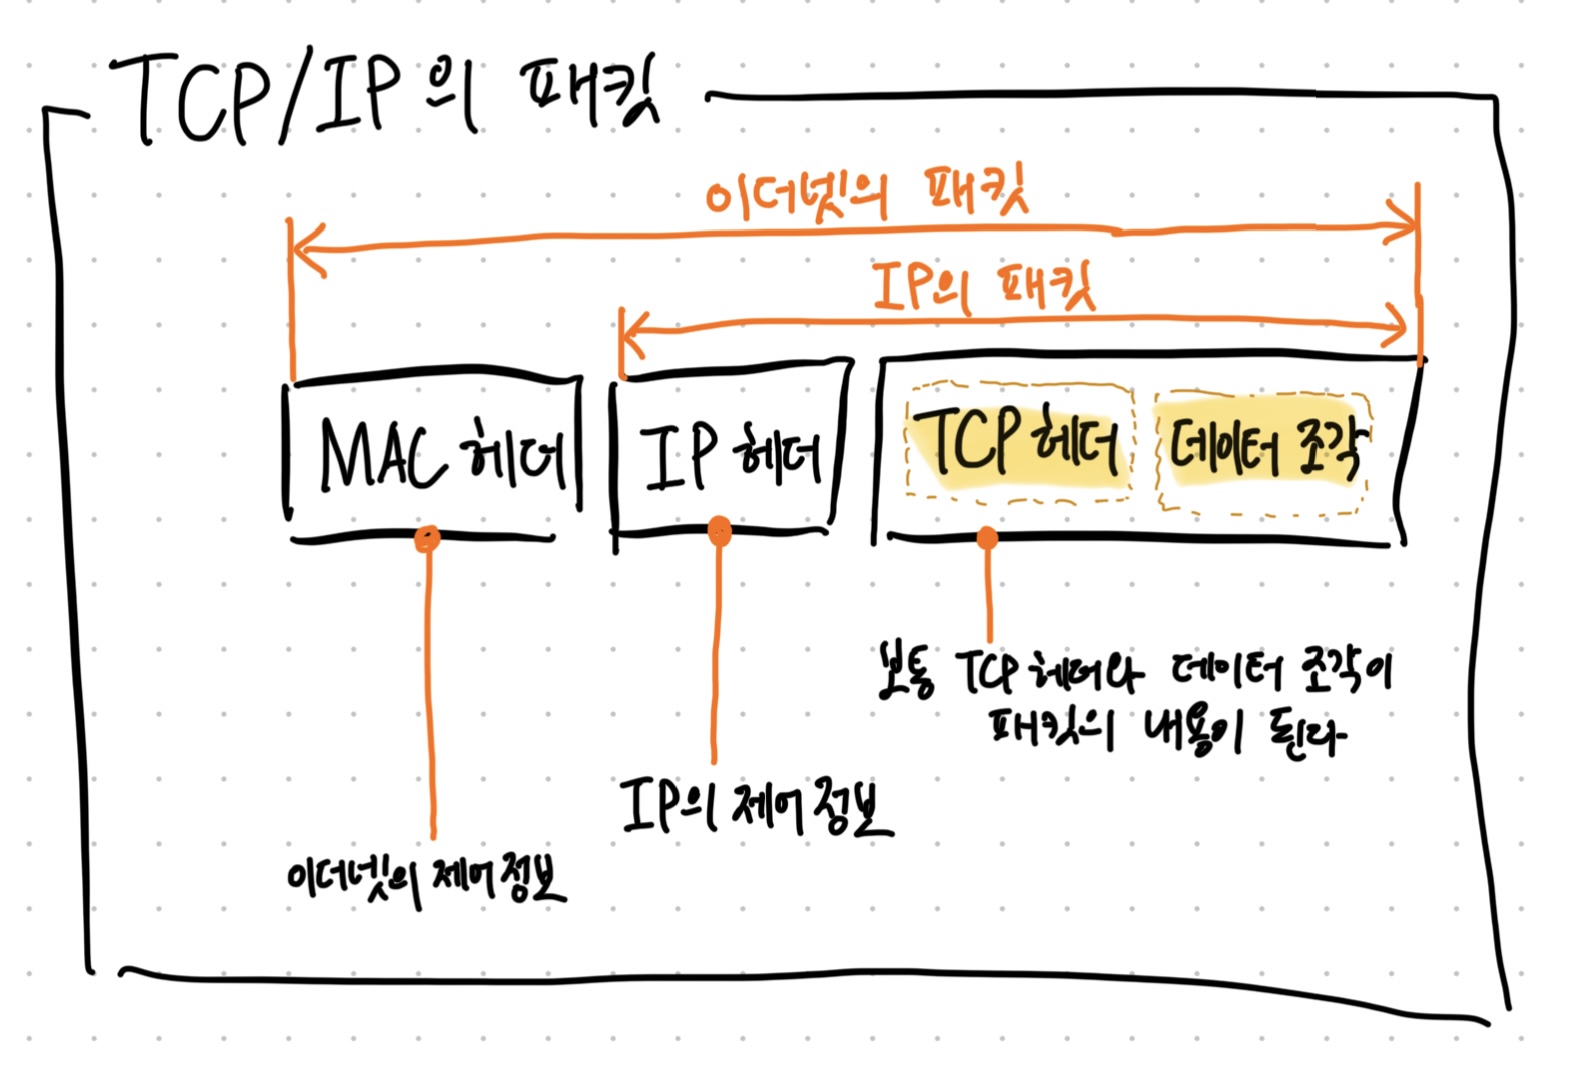 TCP/IP의 패킷
이더넷의 패킷
IP의 패킷
MAC 헤더
IP 헤더
TCP 헤더
데이터 조각
보통 TCP 헤더와 데이터 조각이
패킷의 내용이 된다
IP의 제어 정보
이더넷의 제어 정보